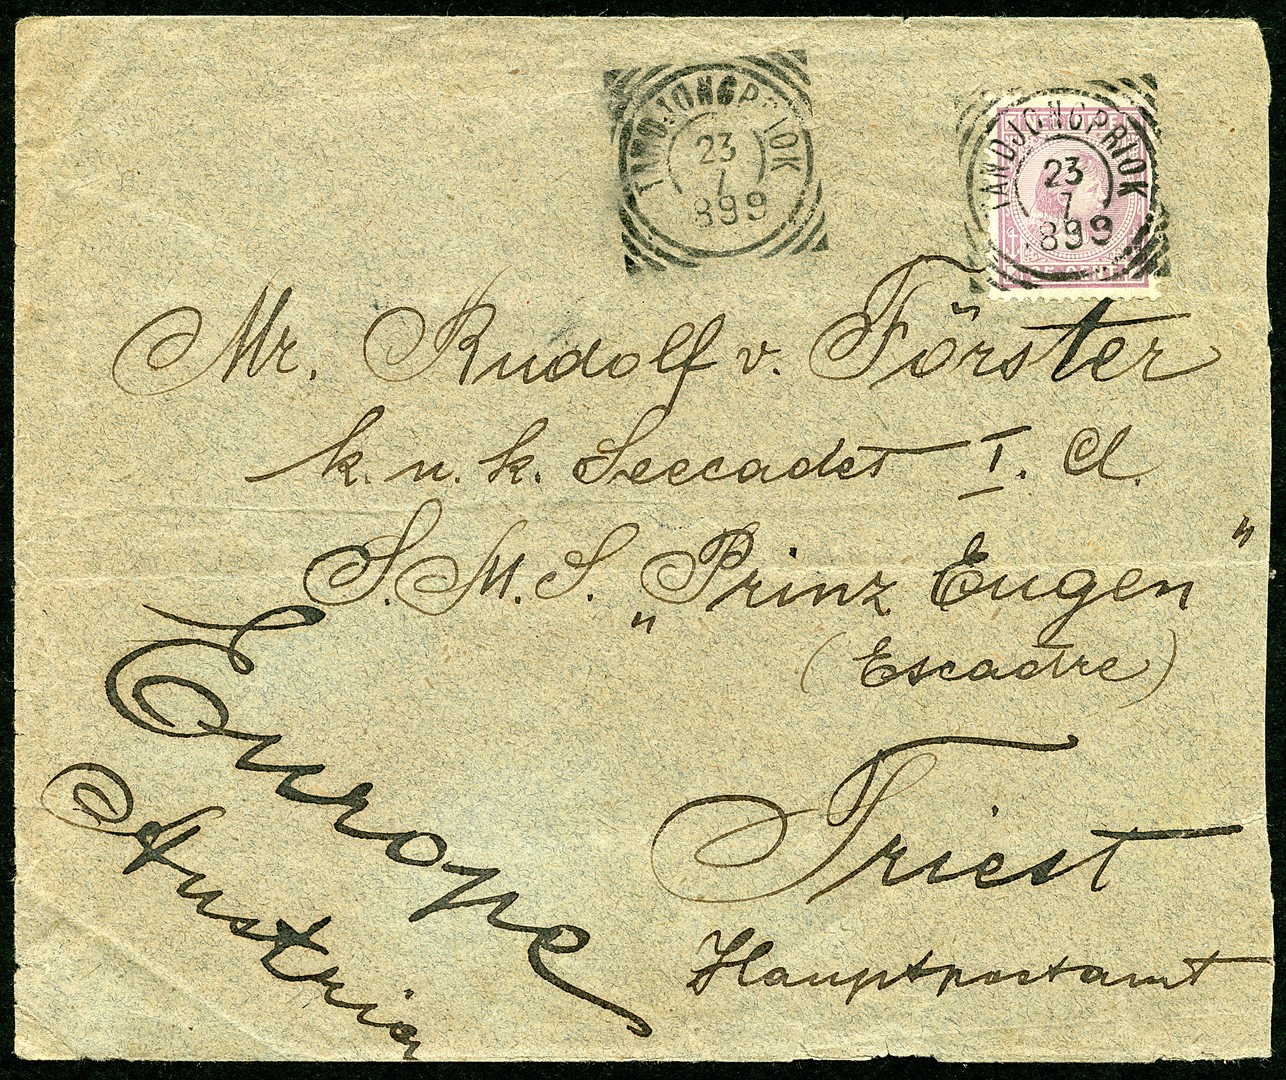 TANDJONGPRIOK
23
7
899
TANDJONGPRIOK
23
7
899
Mr. Rudolf v. Förster
k. u. k. Seecadet I. Cl.
S. M. S. „Prinz Eugen"
(Escadre)
Europe
Austria
Triest
Hauptpostamt